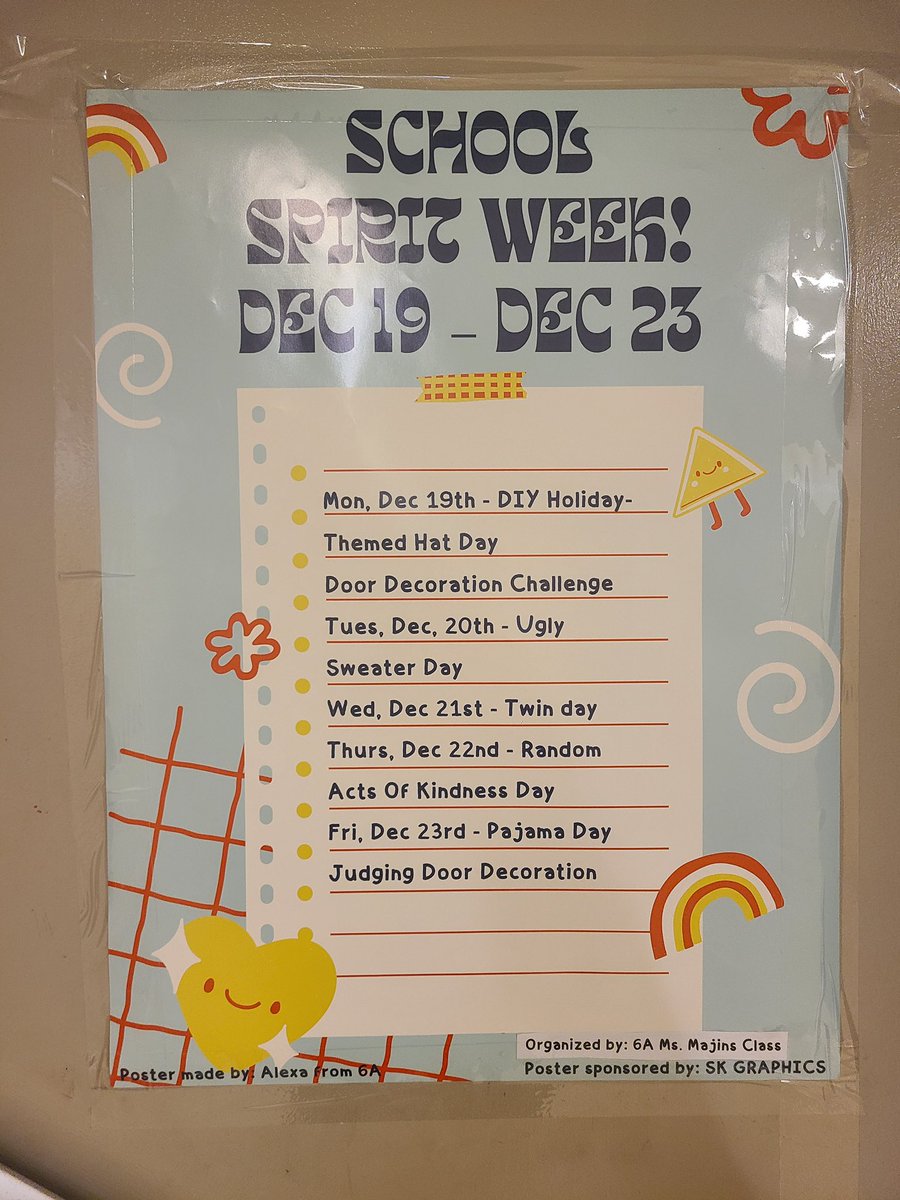 SCHOOL
SPIRIT WEEK!
DEC 19 - DEC 23
Mon, Dec 19th - DIY Holiday-
Themed Hat Day
Door Decoration Challenge
Tues, Dec, 20th - Ugly
Sweater Day
Wed, Dec 21st - Twin day
Thurs, Dec 22nd - Random
Acts Of Kindness Day
Fri, Dec 23rd - Pajama Day
Judging Door Decoration
Organized by: 6A Ms. Majins Class
Poster made by: Alexa from 6A
Poster sponsored by: SK GRAPHICS